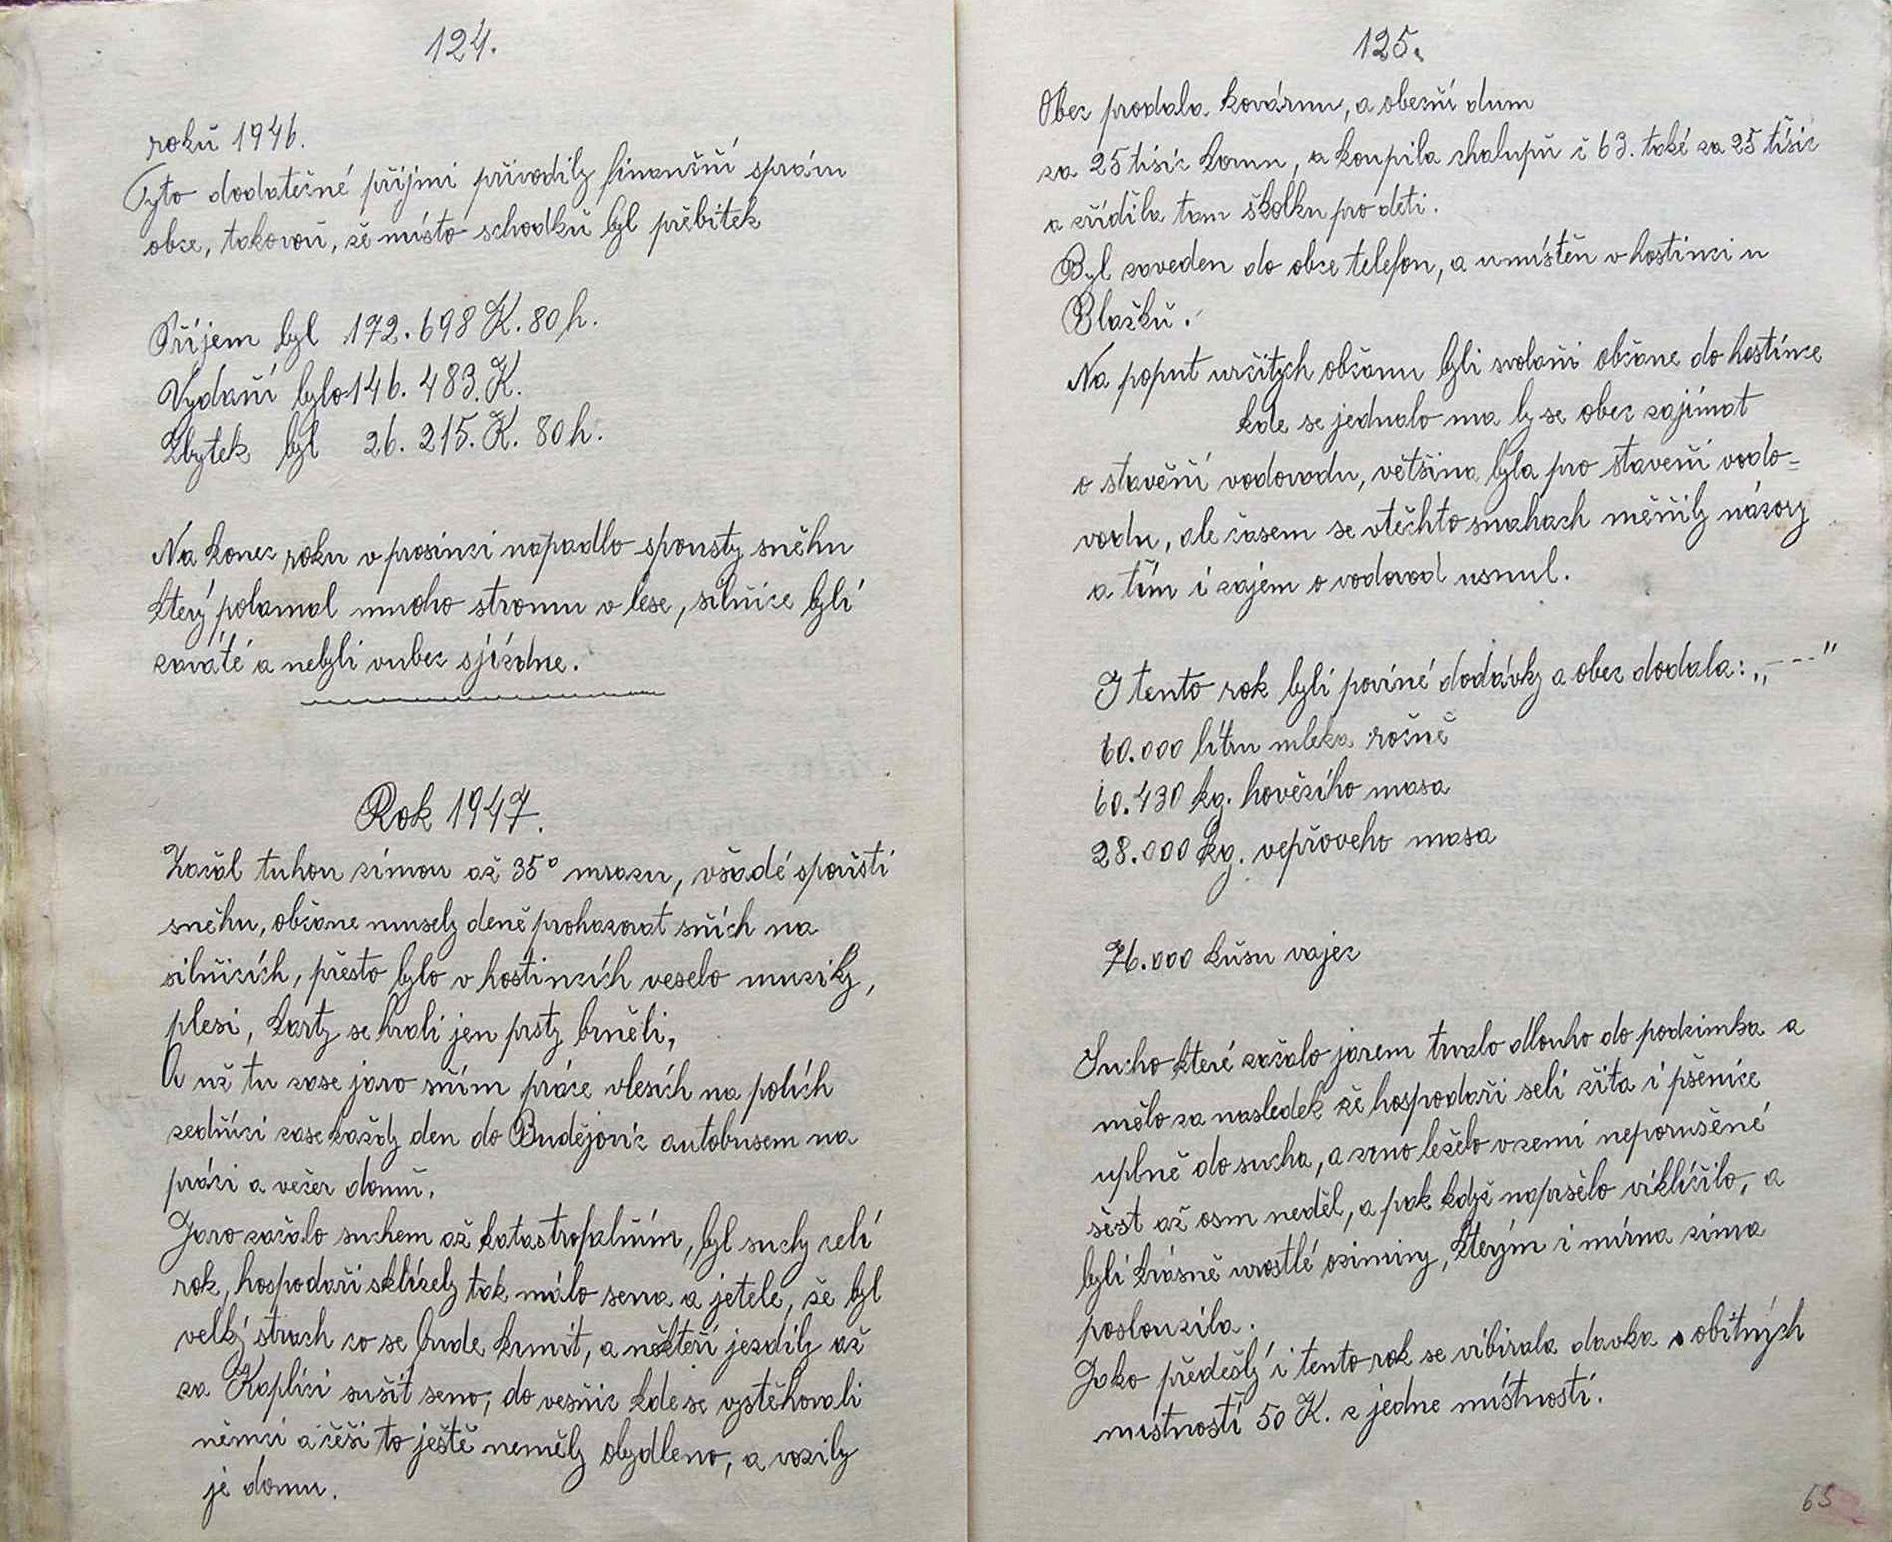 124.
roků 1946.
Tyto dodatečné příjmi přivodily finanční správu
obce, takovoů, že místo schodků byl přebitek
Příjem byl 172.698 K. 80 h.
Vydaní bylo 146.483. K.
Zbytek byl 26.215. K. 80 h.
Na konec roku v prosinci napadlo spousty sněhu
který polamal mnoho stromu v lese, silnice byli
zaváté a nebyli vubec sjízdne.
Rok 1947.
Začal tuhou zimou až 35° mrazu, všadé spoůsti
sněhu, občane musely deně prohazovat sních na
silnicích, přesto bylo v hostincích veselo muziky,
plesi, karty se hrali jen prsty brněli,
A už tu zase jaro sním práce vlesích na polích
zedníci zase každy den do Budějovic autobusem na
práci a večer domů.
Jaro začalo suchem až katastrofalním, byl suchy celí
rok, hospodaři sklízely tak málo sena a jetele, že byl
velký strach co se bude krmit, a někteří jezdily až
za Kaplici sušit seno, do vesnic kde se vystěhovali
němci a češi to ještě neměly obydleno, a vozily
je domu.
125.
Obec prodala kovárnu, a obecní dum
za 25 tisíc korun, a koupila chalupů č 63. také za 25 tisíc
a zřídila tam školku pro deti.
Byl zaveden do obce telefon, a umístěn v hostinci u
Blažků.
Na poput určitych občanu byli svolani občane do hostince
kde se jednalo ma by se obec zajímat
o stavění vodovodu, většina byla pro stavení vodo=
vodu, ale časem se vtěchto snahach měnily názory
a tím i zajem o vodovod usnul.
I tento rok byli poviné dodávky a obec dodala: „---"
60.000 lítru mleka ročně
60.430 kg. hovězího masa
28.000 kg. vepřoveho masa
76.000 kůsu vajec
Sucho které začalo jarem trvalo dlouho do podzimka a
mělo za nasledek že hospodaři seli žita i pšenice
uplně do sucha, a zrno leželo v zemi neporušené
šest až osm neděl, a pak když napršelo viklíčilo, a
byli krásně vrostlé oziminy, kterým i mírna zima
poslouzila.
Jako předešlý i tento rok se vibirala davka s obitných
mistností 50 K. z jedne místnosti.
65